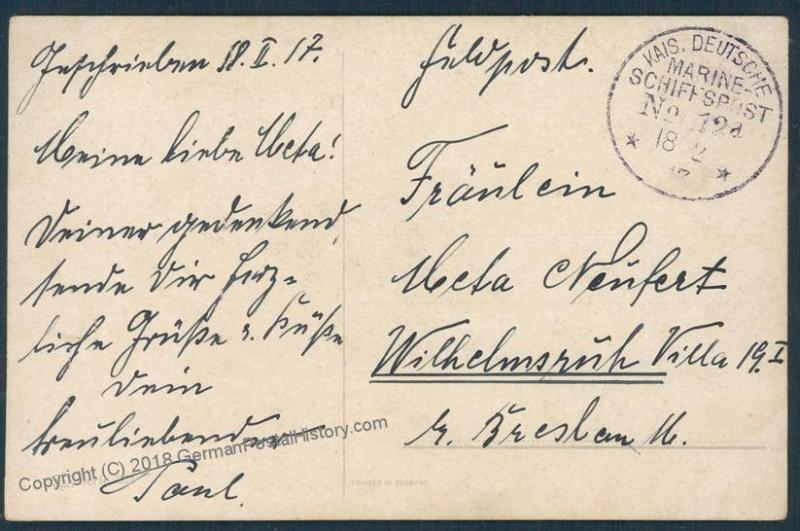 Geschrieben 18.II.17.
Meine liebe Meta!
Deiner gedenkend,
sende Dir herz=
liche Grüße u. Küße
Dein
treuliebender
Paul.
Feldpost.
KAIS. DEUTSCHE
MARINE-
SCHIFFSPOST
No 124
18 2
17
Fräulein
Meta Neufert
Wilhelmsruh Villa 19.I
b. Breslau
PRINTED IN GERMANY
Copyright (C) 2018 GermanPostalHistory.com